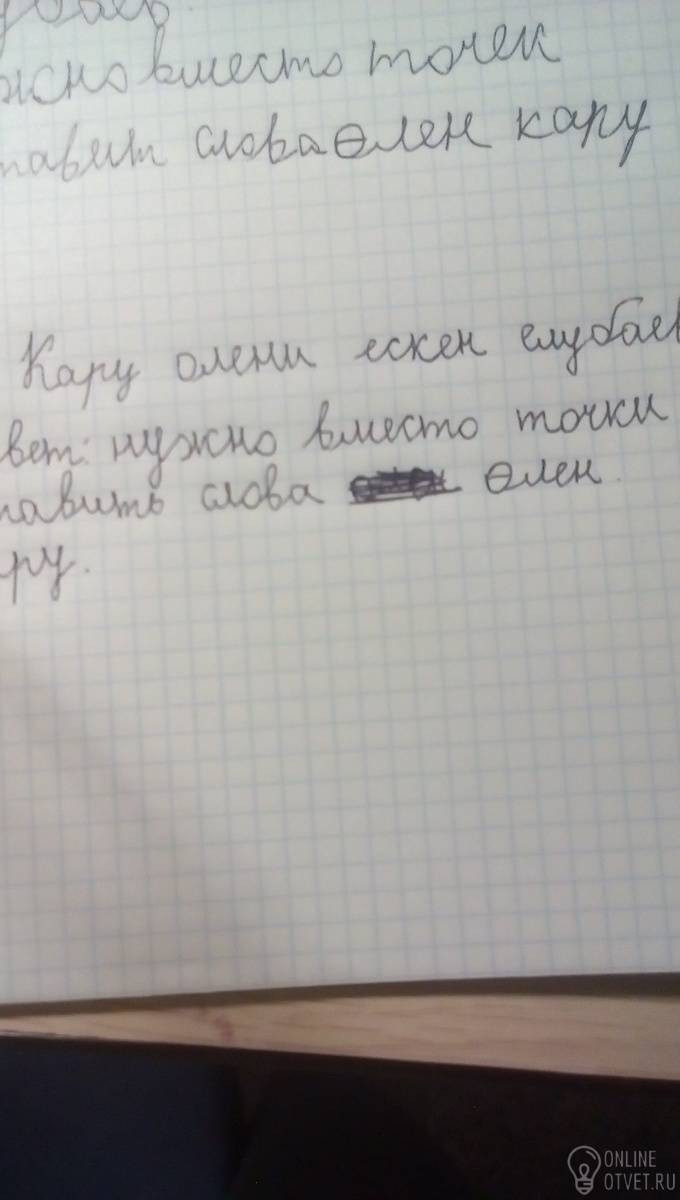 убаев.
жно вместо точек
тавит слова өлен кару
Кару олени ескен елубаев
вет: нужно вместо точки
тавить слова өлен
ру.
ONLINE
OTVET.RU